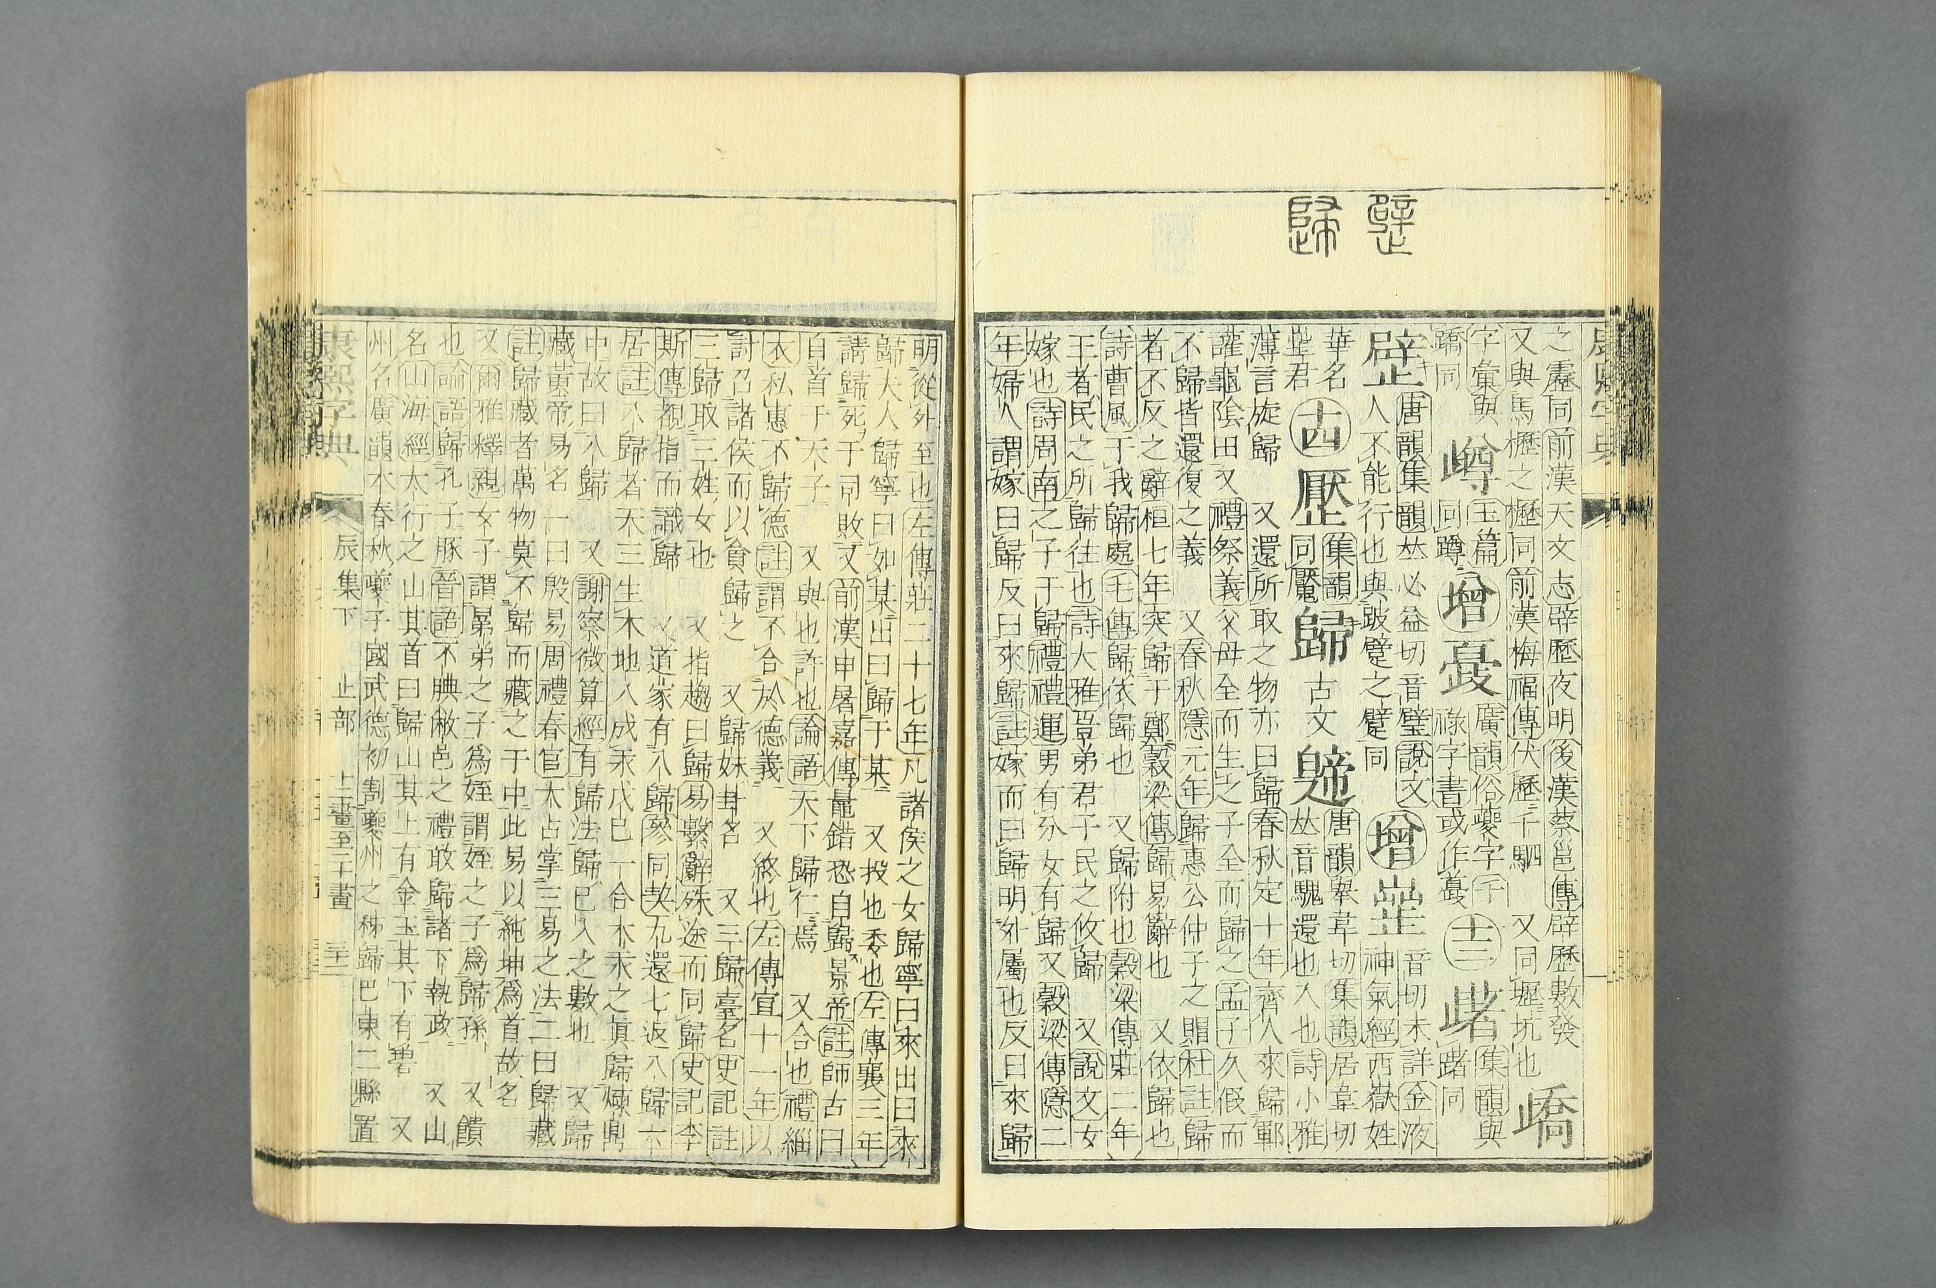 躄 歸
之靂同前漢天文志辟歷夜明後漢蔡邕傳辟歷數發
又與馬櫪之櫪同前漢梅福傳伏歷千駟 又同壢坑也
字彙與
蹻同
玉篇
同蹲
增
廣韻俗夔字干
祿字書或作夔
十三
集韻與
躇同
唐韻集韻𠀤必益切音璧說文
人不能行也與跛躄之躄同
增
音切未詳金液
神氣經西嶽姓
華名
君
十四
集韻
同魘
歸 古文
唐韻舉韋切集韻居韋切
𠀤音騩還也入也詩小雅
薄言旋歸 又還所取之物亦曰歸春秋定十年齊人來歸鄆
讙龜陰田又禮祭義父母全而生之子全而歸之孟子久假而
不歸皆還復之義 又春秋隱元年歸惠公仲子之賵杜註歸
者不反之辭桓七年突歸于鄭穀梁傳歸易辭也 又依歸也
詩曹風于我歸處毛傳歸依歸也 又歸附也穀梁傳莊二年
王者民之所歸往也詩大雅豈弟君子民之攸歸 又說文女
嫁也詩周南之子于歸禮禮運男有分女有歸又穀梁傳隱二
年婦人謂嫁曰歸反曰來歸註嫁而曰歸明外屬也反曰來歸
明從外至也左傳莊二十七年凡諸侯之女歸寧曰來出曰來
歸夫人歸寧曰如某出曰歸于某 又投也委也左傳襄三年
請歸死于司敗又前漢申屠嘉傳鼂錯恐自歸景帝註師古曰
自首于天子 又與也許也論語天下歸仁焉 又合也禮緇
衣私惠不歸德註謂不合於德義 又終也左傳宣十一年以
討召諸侯而以貪歸之 又歸妹卦名 又三歸臺名史記註
三歸取三姓女也 又指趨曰歸易繫辭殊途而同歸史記李
斯傳視指而識歸 又道家有八歸參同契九還七返八歸六
居註八歸者天三生木地八成汞戊己一合木汞之眞歸煉鼎
中故曰八歸 又謝察微算經有歸法歸已入之數也 又歸
藏黃帝易名一曰殷易周禮春官大占掌三易之法二曰歸藏
註歸藏者萬物莫不歸而藏之于中此易以純坤爲首故名
又爾雅釋親女子謂晜弟之子爲姪謂姪之子爲歸孫 又饋
也論語歸孔子豚晉語不腆敝邑之禮敢歸諸下執政 又山
名山海經太行之山其首曰歸山其上有金玉其下有碧 又
州名廣韻本春秋夔子國武德初割夔州之秭歸巴東二縣置
康熙字典 辰集下 止部 十二畫至十四畫